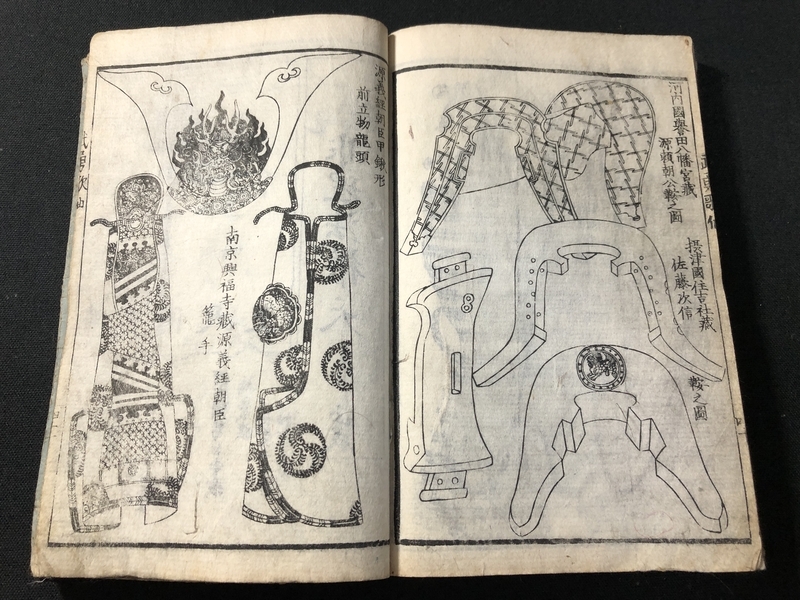 河内國譽田八幡宮蔵
源頼朝公鞍之圖
摂津國住吉社蔵
佐藤次信
鞍之圖
源義經朝臣甲鍬形
前立物龍頭
南京興福寺蔵源義經朝臣
籠手